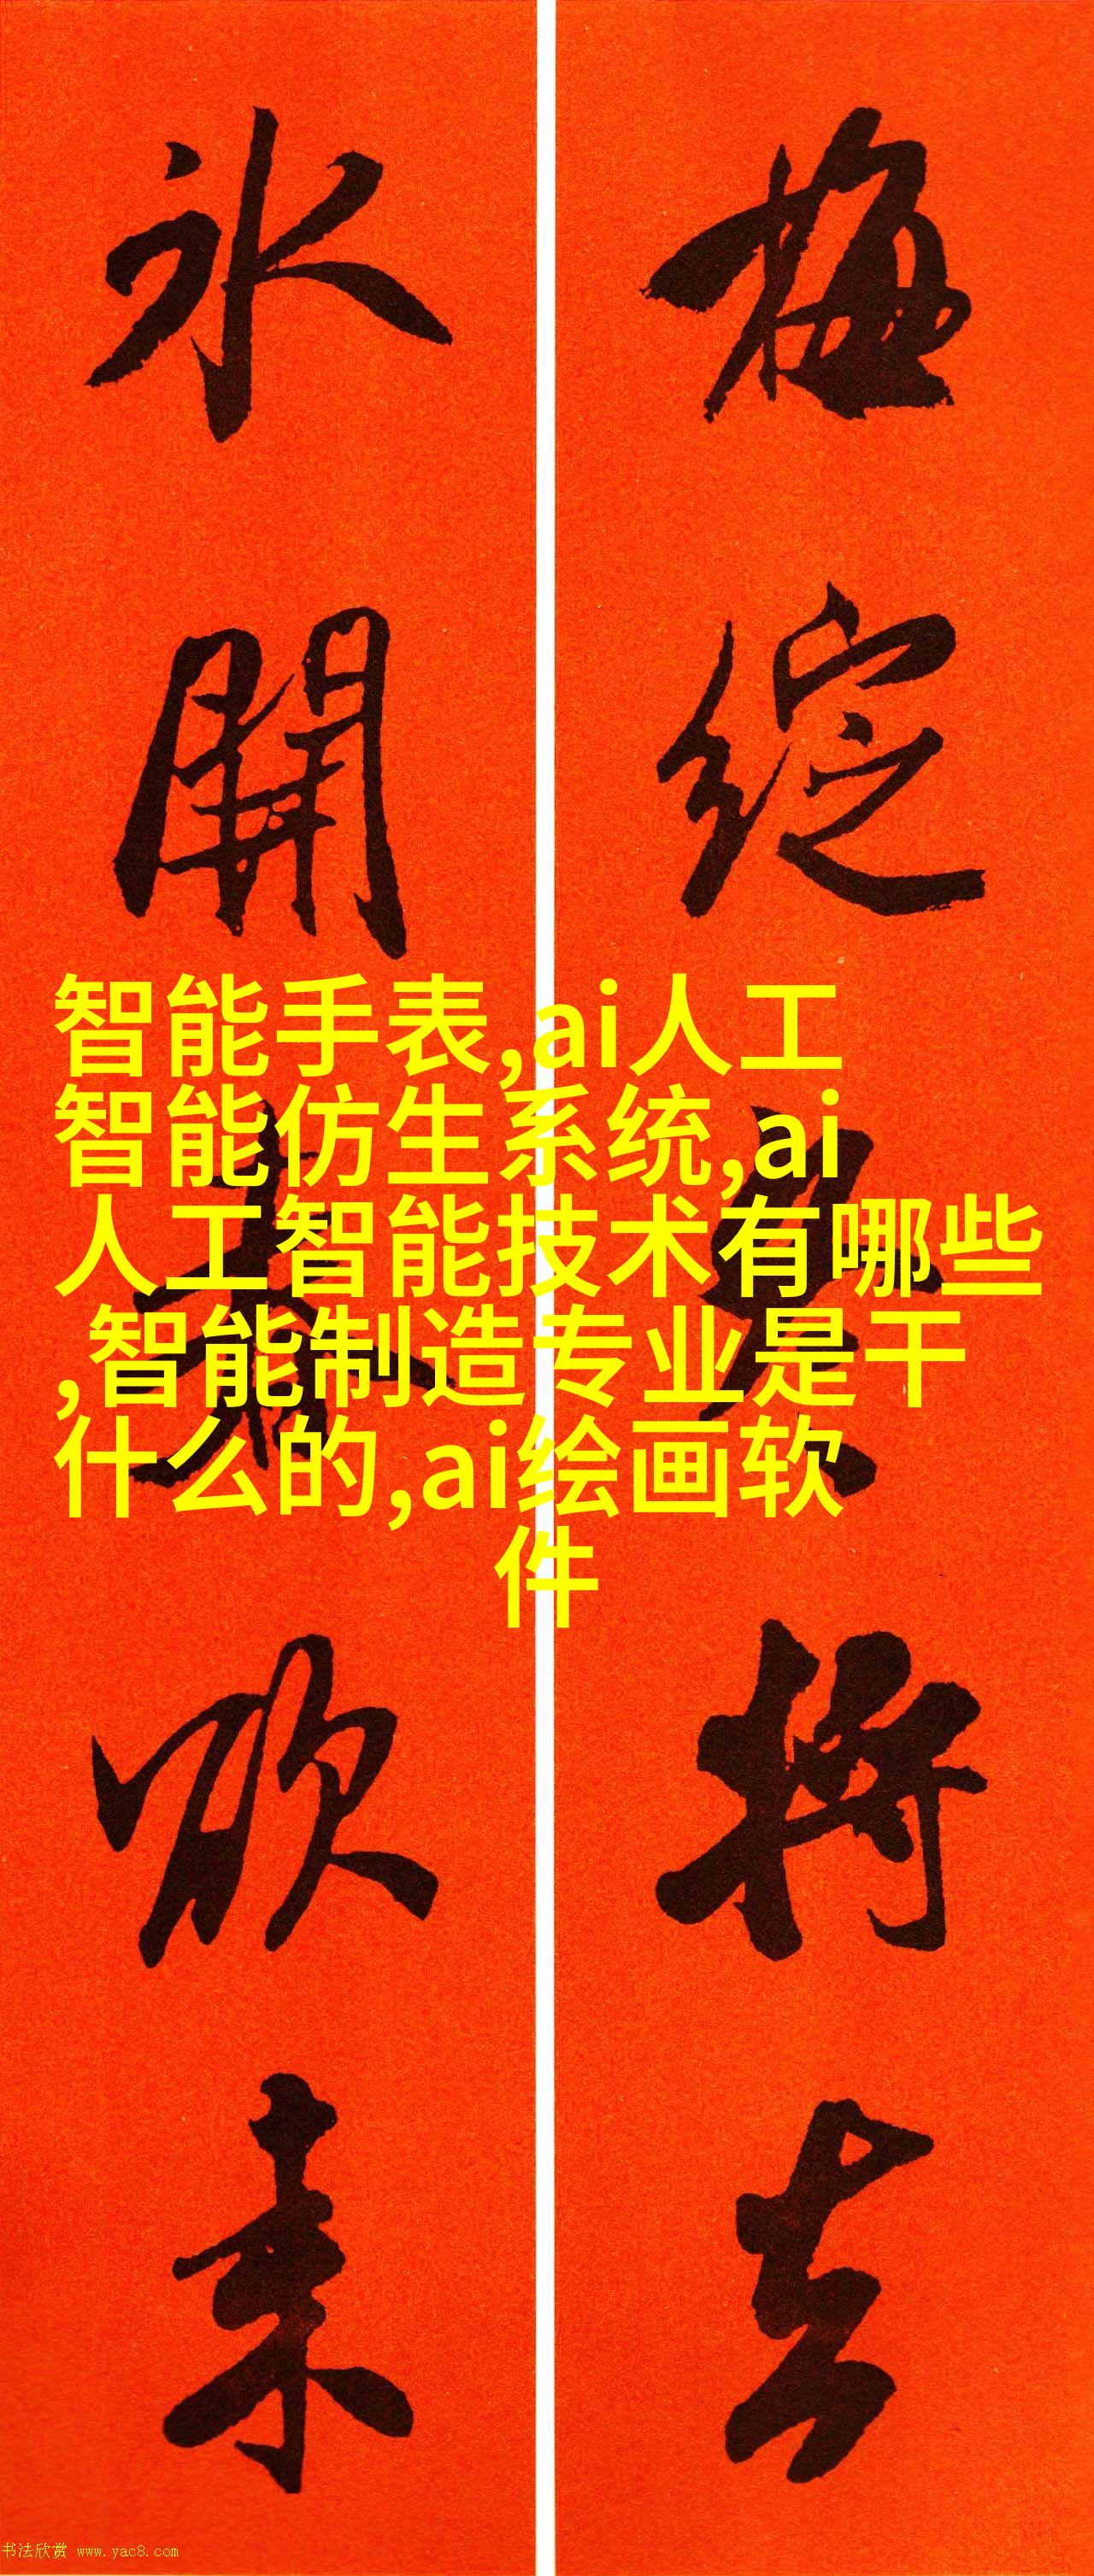 梅綻冬将去
氷開春欲来
智能手表,ai人工
智能仿生系统,ai
人工智能技术有哪些
,智能制造专业是干
什么的,ai绘画软
件
书法欣赏 www.yac8.com